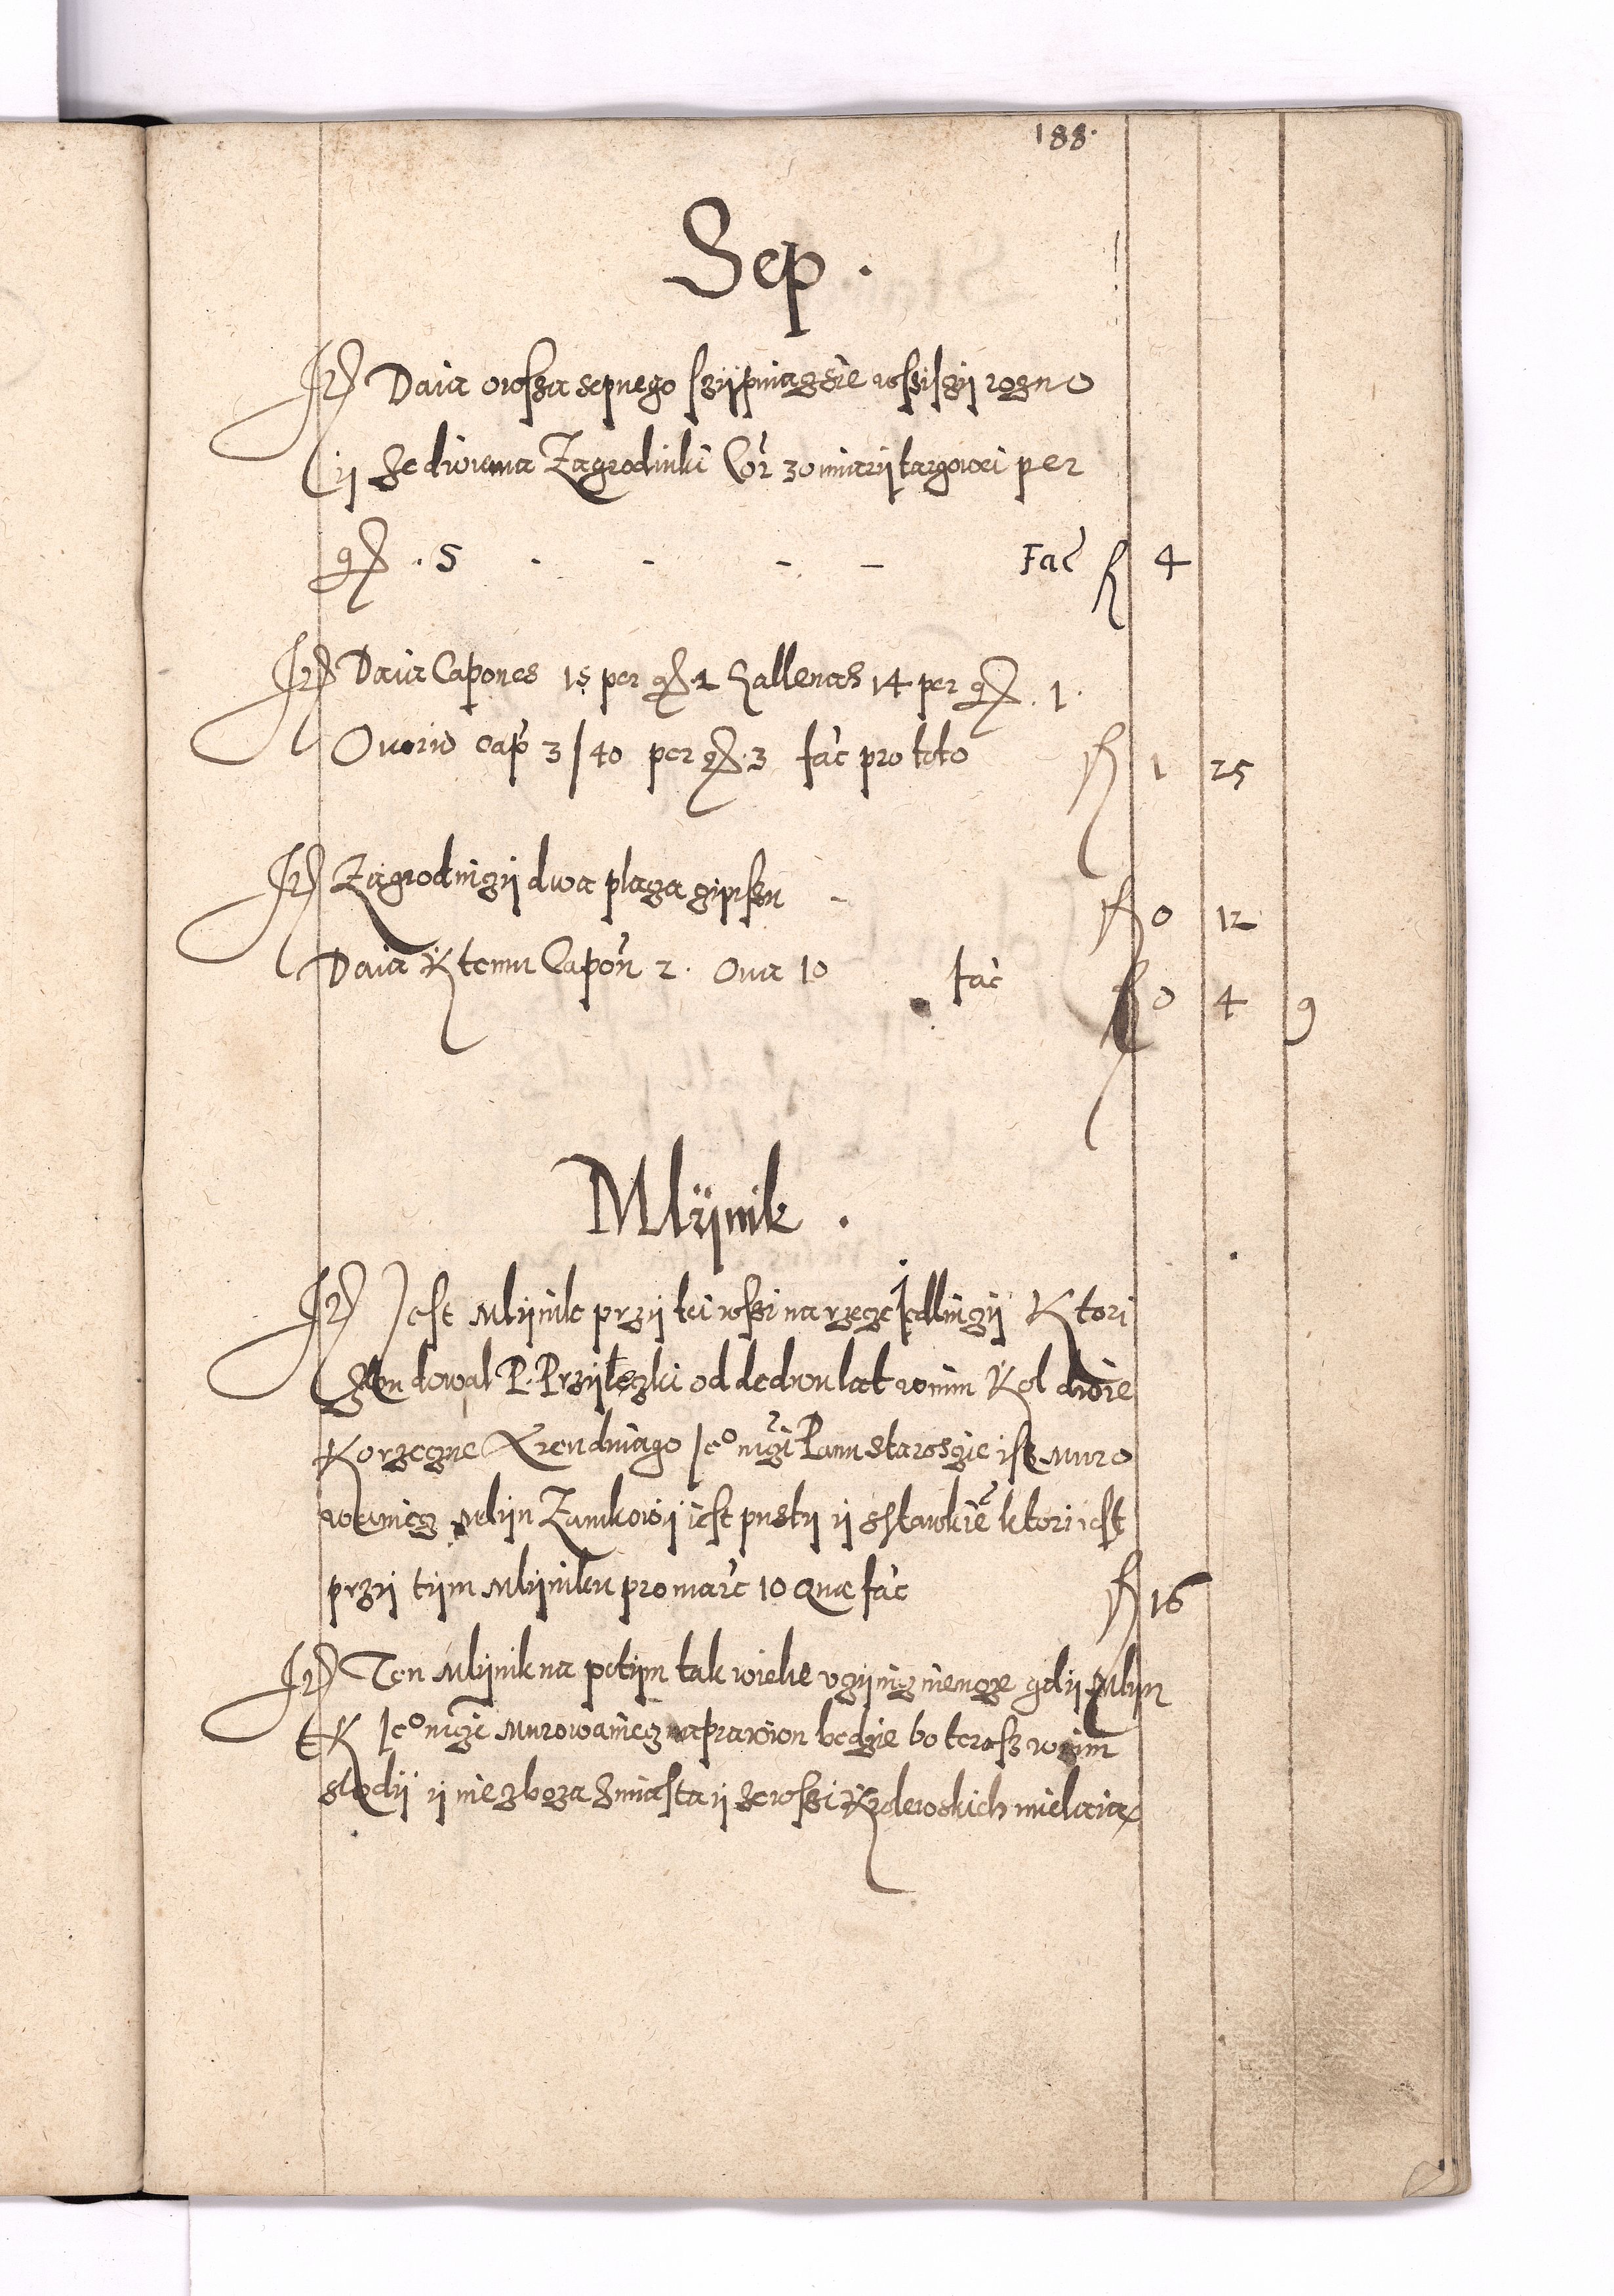 188.
Sep.
Jt Daia owssa sepnego szyjpiagzie wssisgij rogno
ij ze dwiema Zagrodniki Cor 30 miarij targowei per
g 5 Fac fl 4
Jt Daia Capones 15 per g 2 Gallenas 14 per g. 1.
Ovoru cap 3/40 per g. 3 fac pro toto fl 1 25
Jt Zagrodnigij dwa placza gijnssu fl 0 12
Daia K temu Capon 2. Ova 10 fac fl 0 4 9
Mlÿnik.
Jt Jest Mlijnik przij tei wssi na rzege Jedlingij Ktori
Zbudowal P. Przijlezki od dedwu lat wnim Kol dwie
Korzegne Arendniago Je° mgi Panu starosgie isz muro
wanieg Mlijn Zamkowij iest pustij ij sstawkie ktori iest
przij tijm Mlijniku pro marc 10 Quae fac fl 16
Jt Ten Mlijnik na potijm tak wiele vgijnig niemoze gdij Mlyn
K Je° mgi Murowanieg naprawion bedzie bo terasz wnim
slodij ij inne zboza Zmiasta ij ze wssi Krolewskich mielaia